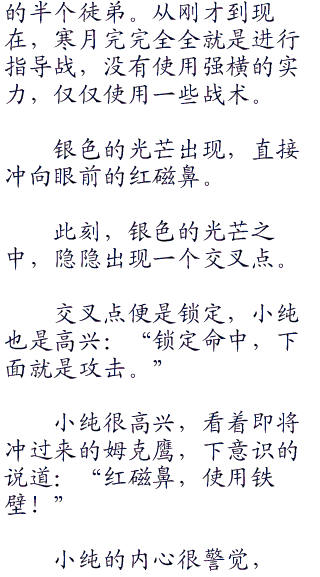 的半个徒弟。从刚才到现
在，寒月完完全全就是进行
指导战，没有使用强横的实
力，仅仅使用一些战术。
银色的光芒出现，直接
冲向眼前的红磁鼻。
此刻，银色的光芒之
中，隐隐出现一个交叉点。
交叉点便是锁定，小纯
也是高兴：“锁定命中，下
面就是攻击。”
小纯很高兴，看着即将
冲过来的姆克鹰，下意识的
说道：“红磁鼻，使用铁
壁！”
小纯的内心很警觉，